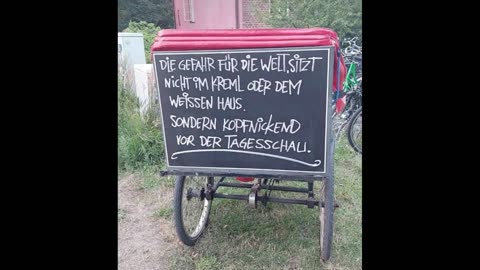 DIE GEFAHR FÜR DIE WELT, SITZT
NICHT IM KREML ODER DEM
WEISSEN HAUS.
SONDERN KOPFNICKEND
VOR DER TAGESSCHAU.